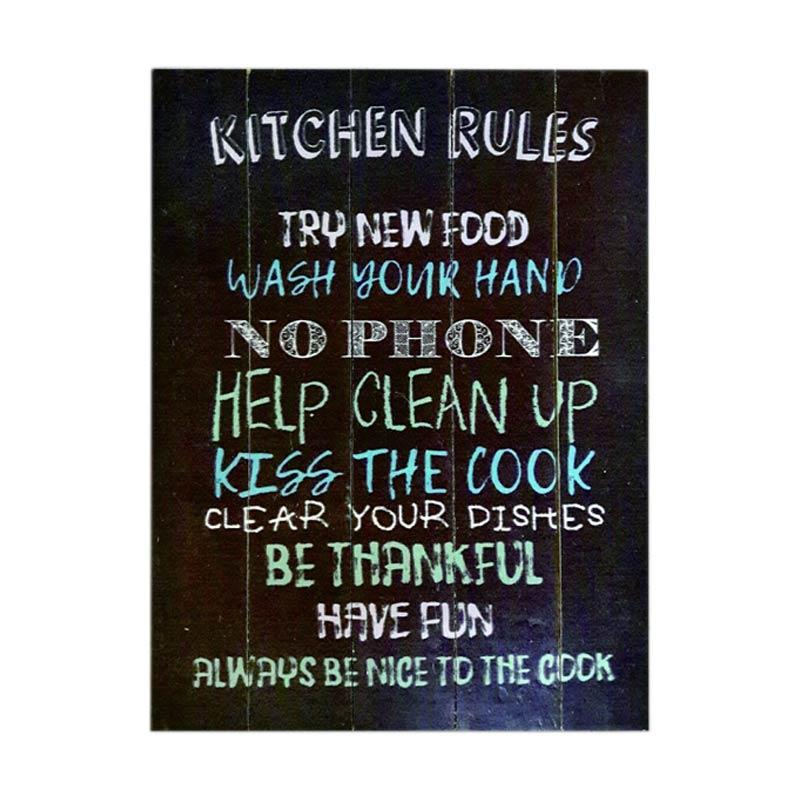 KITCHEN RULES
TRY NEW FOOD
WASH YOUR HAND
NO PHONE
HELP CLEAN UP
KISS THE COOK
CLEAR YOUR DISHES
BE THANKFUL
HAVE FUN
ALWAYS BE NICE TO THE COOK